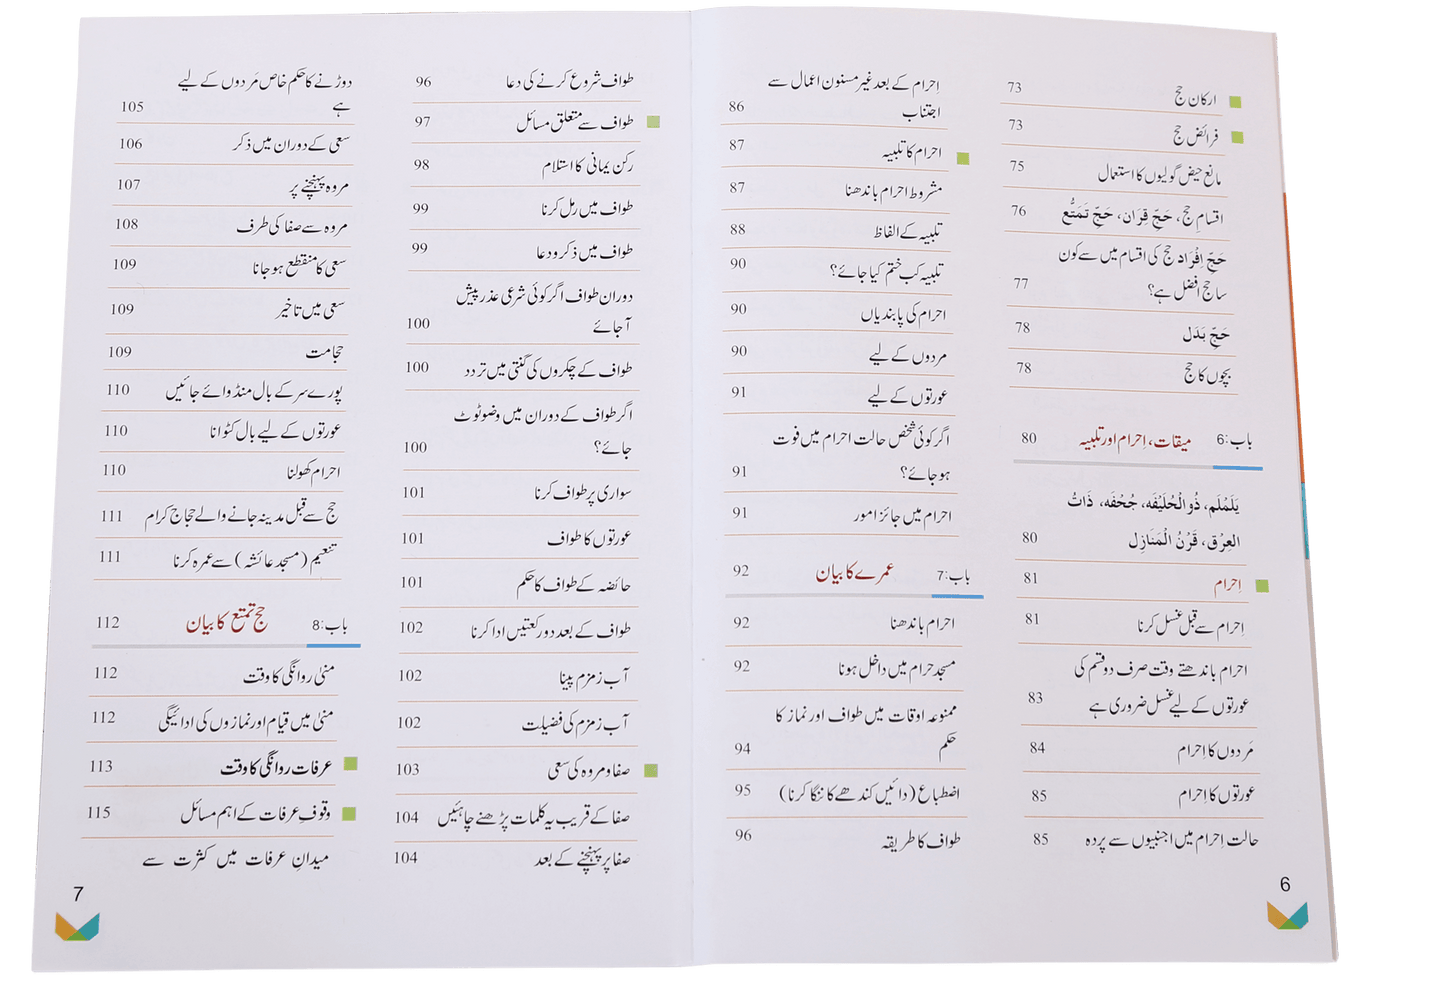 ارکان حج 73
فرائض حج 73
مانع حیض گولیوں کا استعمال 75
اقسامِ حج، حَجِّ قِرَان، حَجِّ تَمَتُّع 76
حَجِّ اِفْرَاد حج کی اقسام میں سے کون
سا حج افضل ہے؟ 77
حَجِّ بَدَل 78
بچوں کا حج 78
باب:6 میقات، اِحرام اور تلبیہ 80
یَلَمْلَم، ذُوالْحُلَیْفَہ، جُحْفَہ، ذَاتُ
العِرْق، قَرْنُ الْمَنَازِل 80
اِحرام 81
اِحرام سے قبل غسل کرنا 81
احرام باندھتے وقت صرف دو قسم کی
عورتوں کے لیے غسل ضروری ہے 83
مَردوں کا اِحرام 84
عورتوں کا اِحرام 85
حالت اِحرام میں اجنبیوں سے پردہ 85
اِحرام کے بعد غیر مسنون اعمال سے
اجتناب 86
احرام کا تلبیہ 87
مشروط احرام باندھنا 87
تلبیہ کے الفاظ 88
تلبیہ کب ختم کیا جائے؟ 90
احرام کی پابندیاں 90
مردوں کے لیے 90
عورتوں کے لیے 91
اگر کوئی شخص حالت احرام میں فوت
ہو جائے؟ 91
احرام میں جائز امور 91
باب:7 عمرے کا بیان 92
احرام باندھنا 92
مسجد حرام میں داخل ہونا 92
ممنوعہ اوقات میں طواف اور نماز کا
حکم 94
اضطباع (دائیں کندھے کا ننگا کرنا) 95
طواف کا طریقہ 96
6
طواف شروع کرنے کی دعا 96
طواف سے متعلق مسائل 97
رکن یمانی کا استلام 98
طواف میں رمل کرنا 99
طواف میں ذکر و دعا 99
دوران طواف اگر کوئی شرعی عذر پیش
آ جائے 100
طواف کے چکروں کی گنتی میں تردد 100
اگر طواف کے دوران میں وضو ٹوٹ
جائے؟ 100
سواری پر طواف کرنا 101
عورتوں کا طواف 101
حائضہ کے طواف کا حکم 101
طواف کے بعد دو رکعتیں ادا کرنا 102
آب زمزم پینا 102
آب زمزم کی فضیلت 102
صفا و مروہ کی سعی 103
صفا کے قریب یہ کلمات پڑھنے چاہئیں 104
صفا پر پہنچنے کے بعد 104
دوڑنے کا حکم خاص مَردوں کے لیے
ہے 105
سعی کے دوران میں ذکر 106
مروہ پہنچنے پر 107
مروہ سے صفا کی طرف 108
سعی کا منقطع ہو جانا 109
سعی میں تاخیر 109
حجامت 109
پورے سر کے بال منڈوائے جائیں 110
عورتوں کے لیے بال کٹوانا 110
احرام کھولنا 110
حج سے قبل مدینہ جانے والے حجاج کرام 111
تنعیم (مسجد عائشہ) سے عمرہ کرنا 111
باب:8 حج تمتع کا بیان 112
منیٰ روانگی کا وقت 112
منیٰ میں قیام اور نمازوں کی ادائیگی 112
عرفات روانگی کا وقت 113
وقوفِ عرفات کے اہم مسائل 115
میدانِ عرفات میں کثرت سے
7